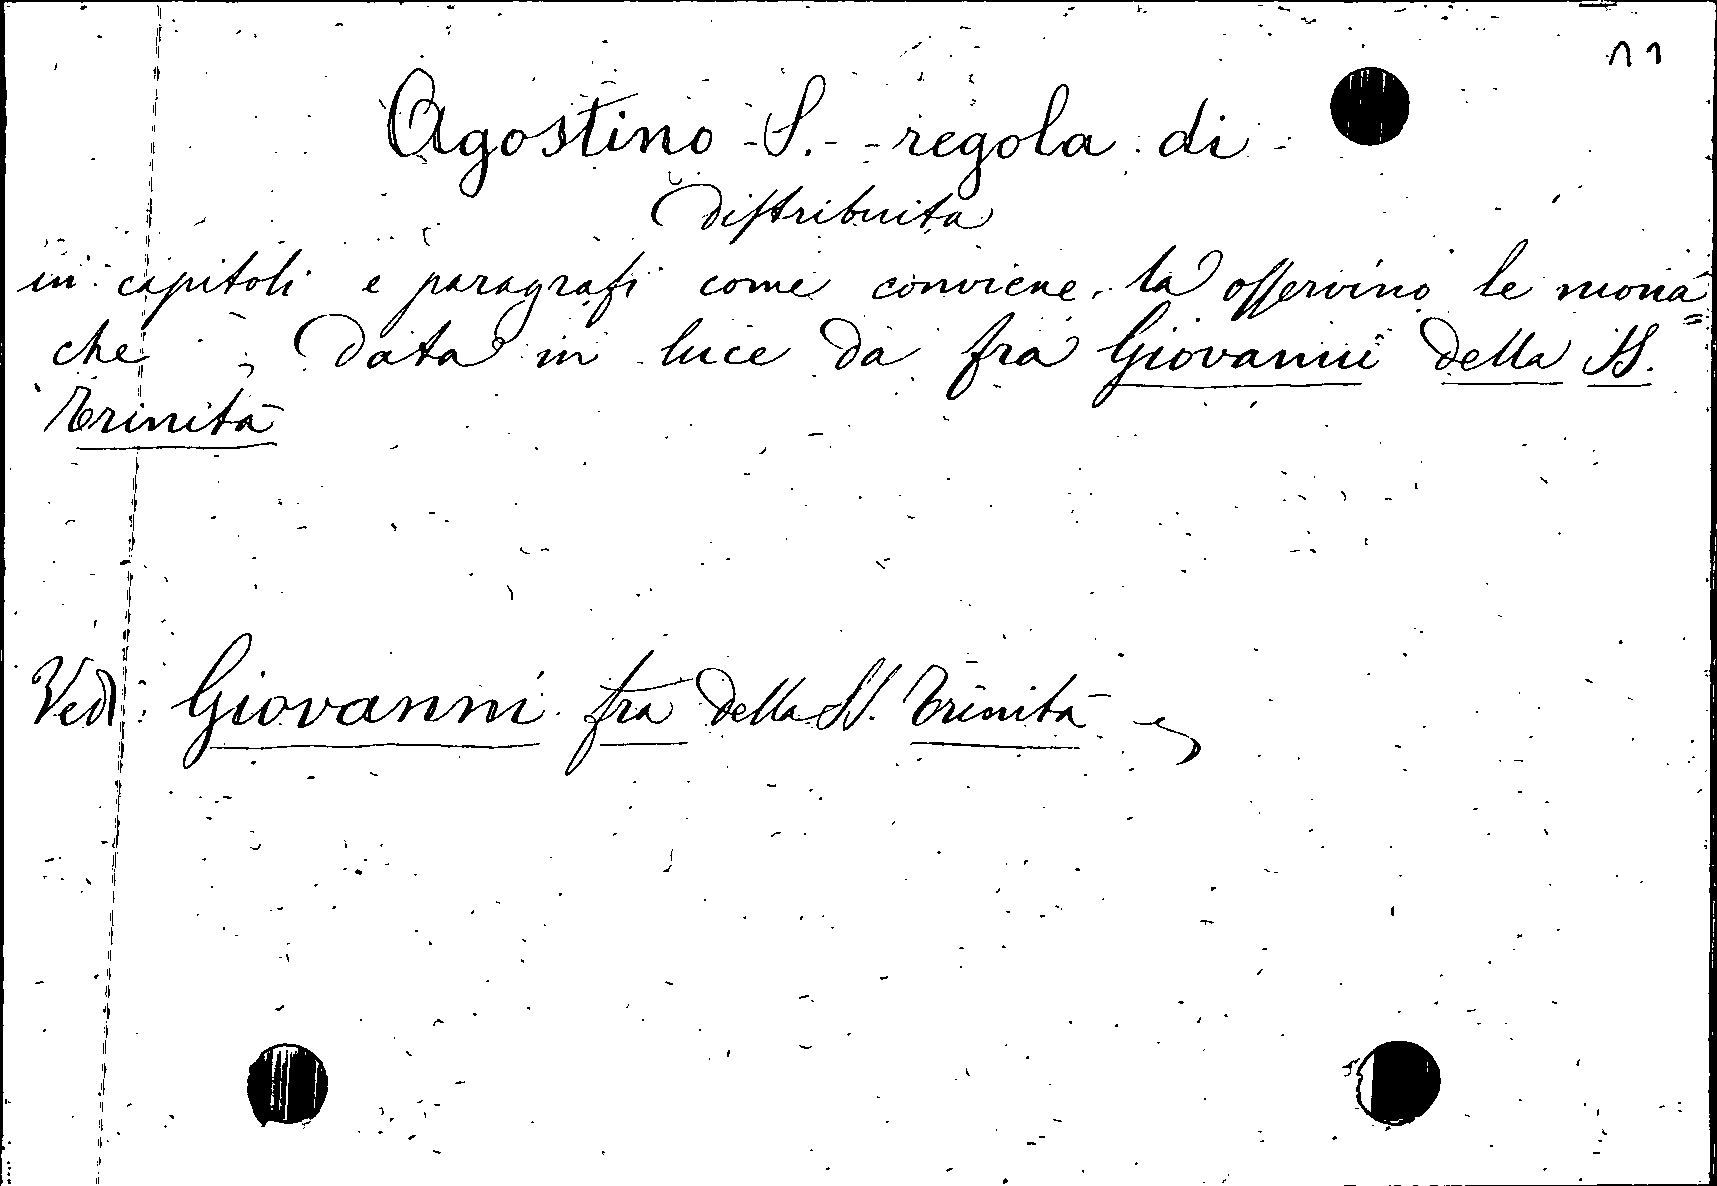 11
Agostino - S. - - regola di -
distribuita
in capitoli e paragrafi come conviene, la osservino le mona=
che, Data in luce da fra Giovanni della SS.
Trinita
Vedi: Giovanni fra della SS. Trinita